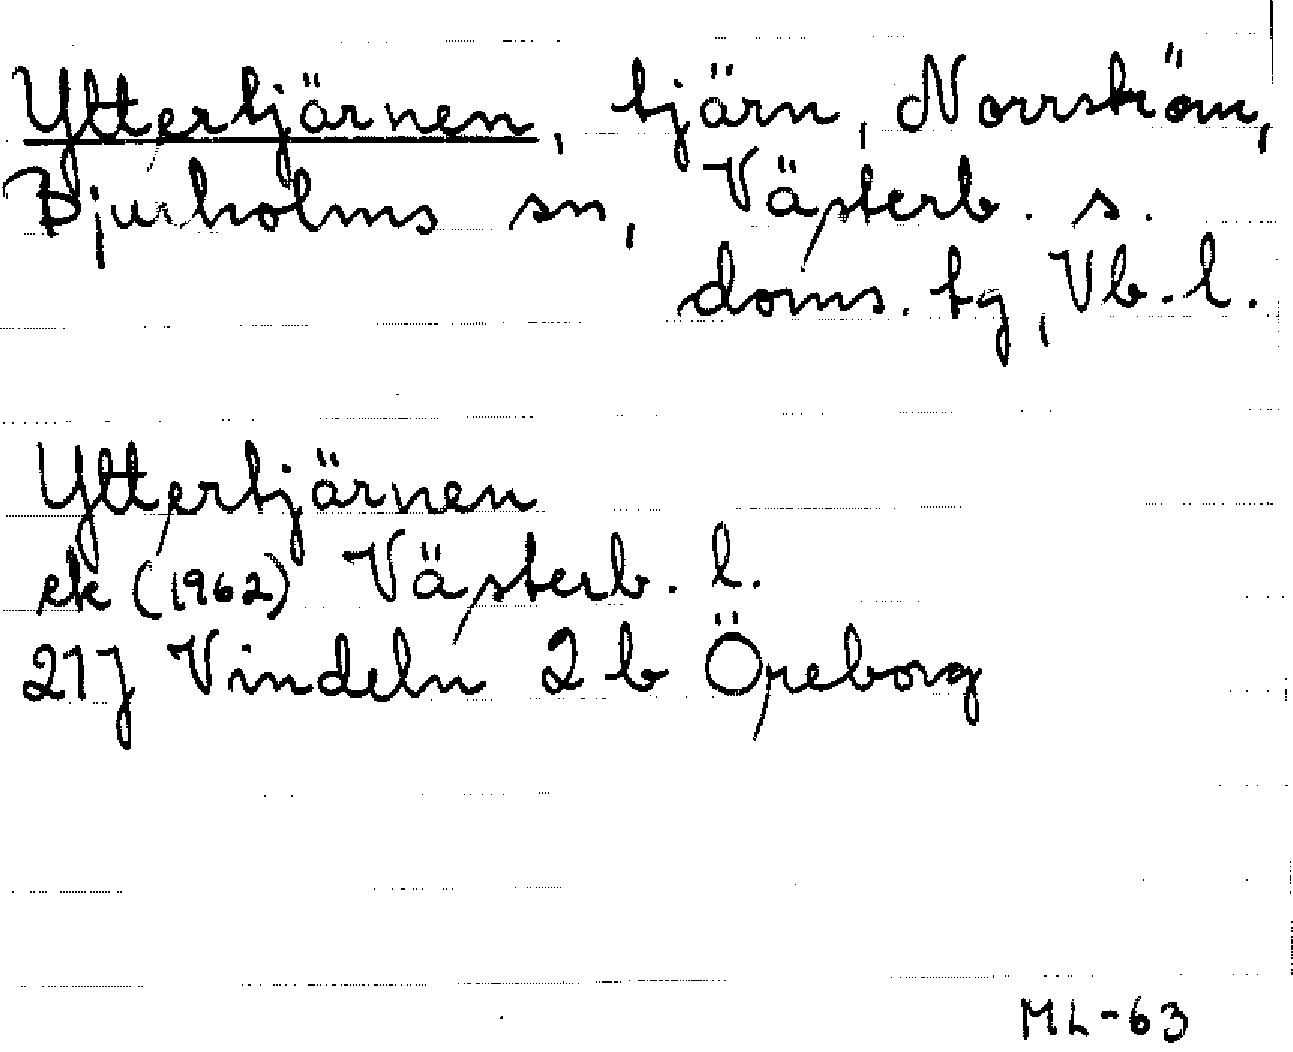 Yttertjärnen, tjärn, Norrström,
Bjurholms sn, Västerb. s.
doms. tg, Vb. l.
Yttertjärnen
ek (1962) Västerb. l.
21J Vindeln 2 b Öreborg
ML-63